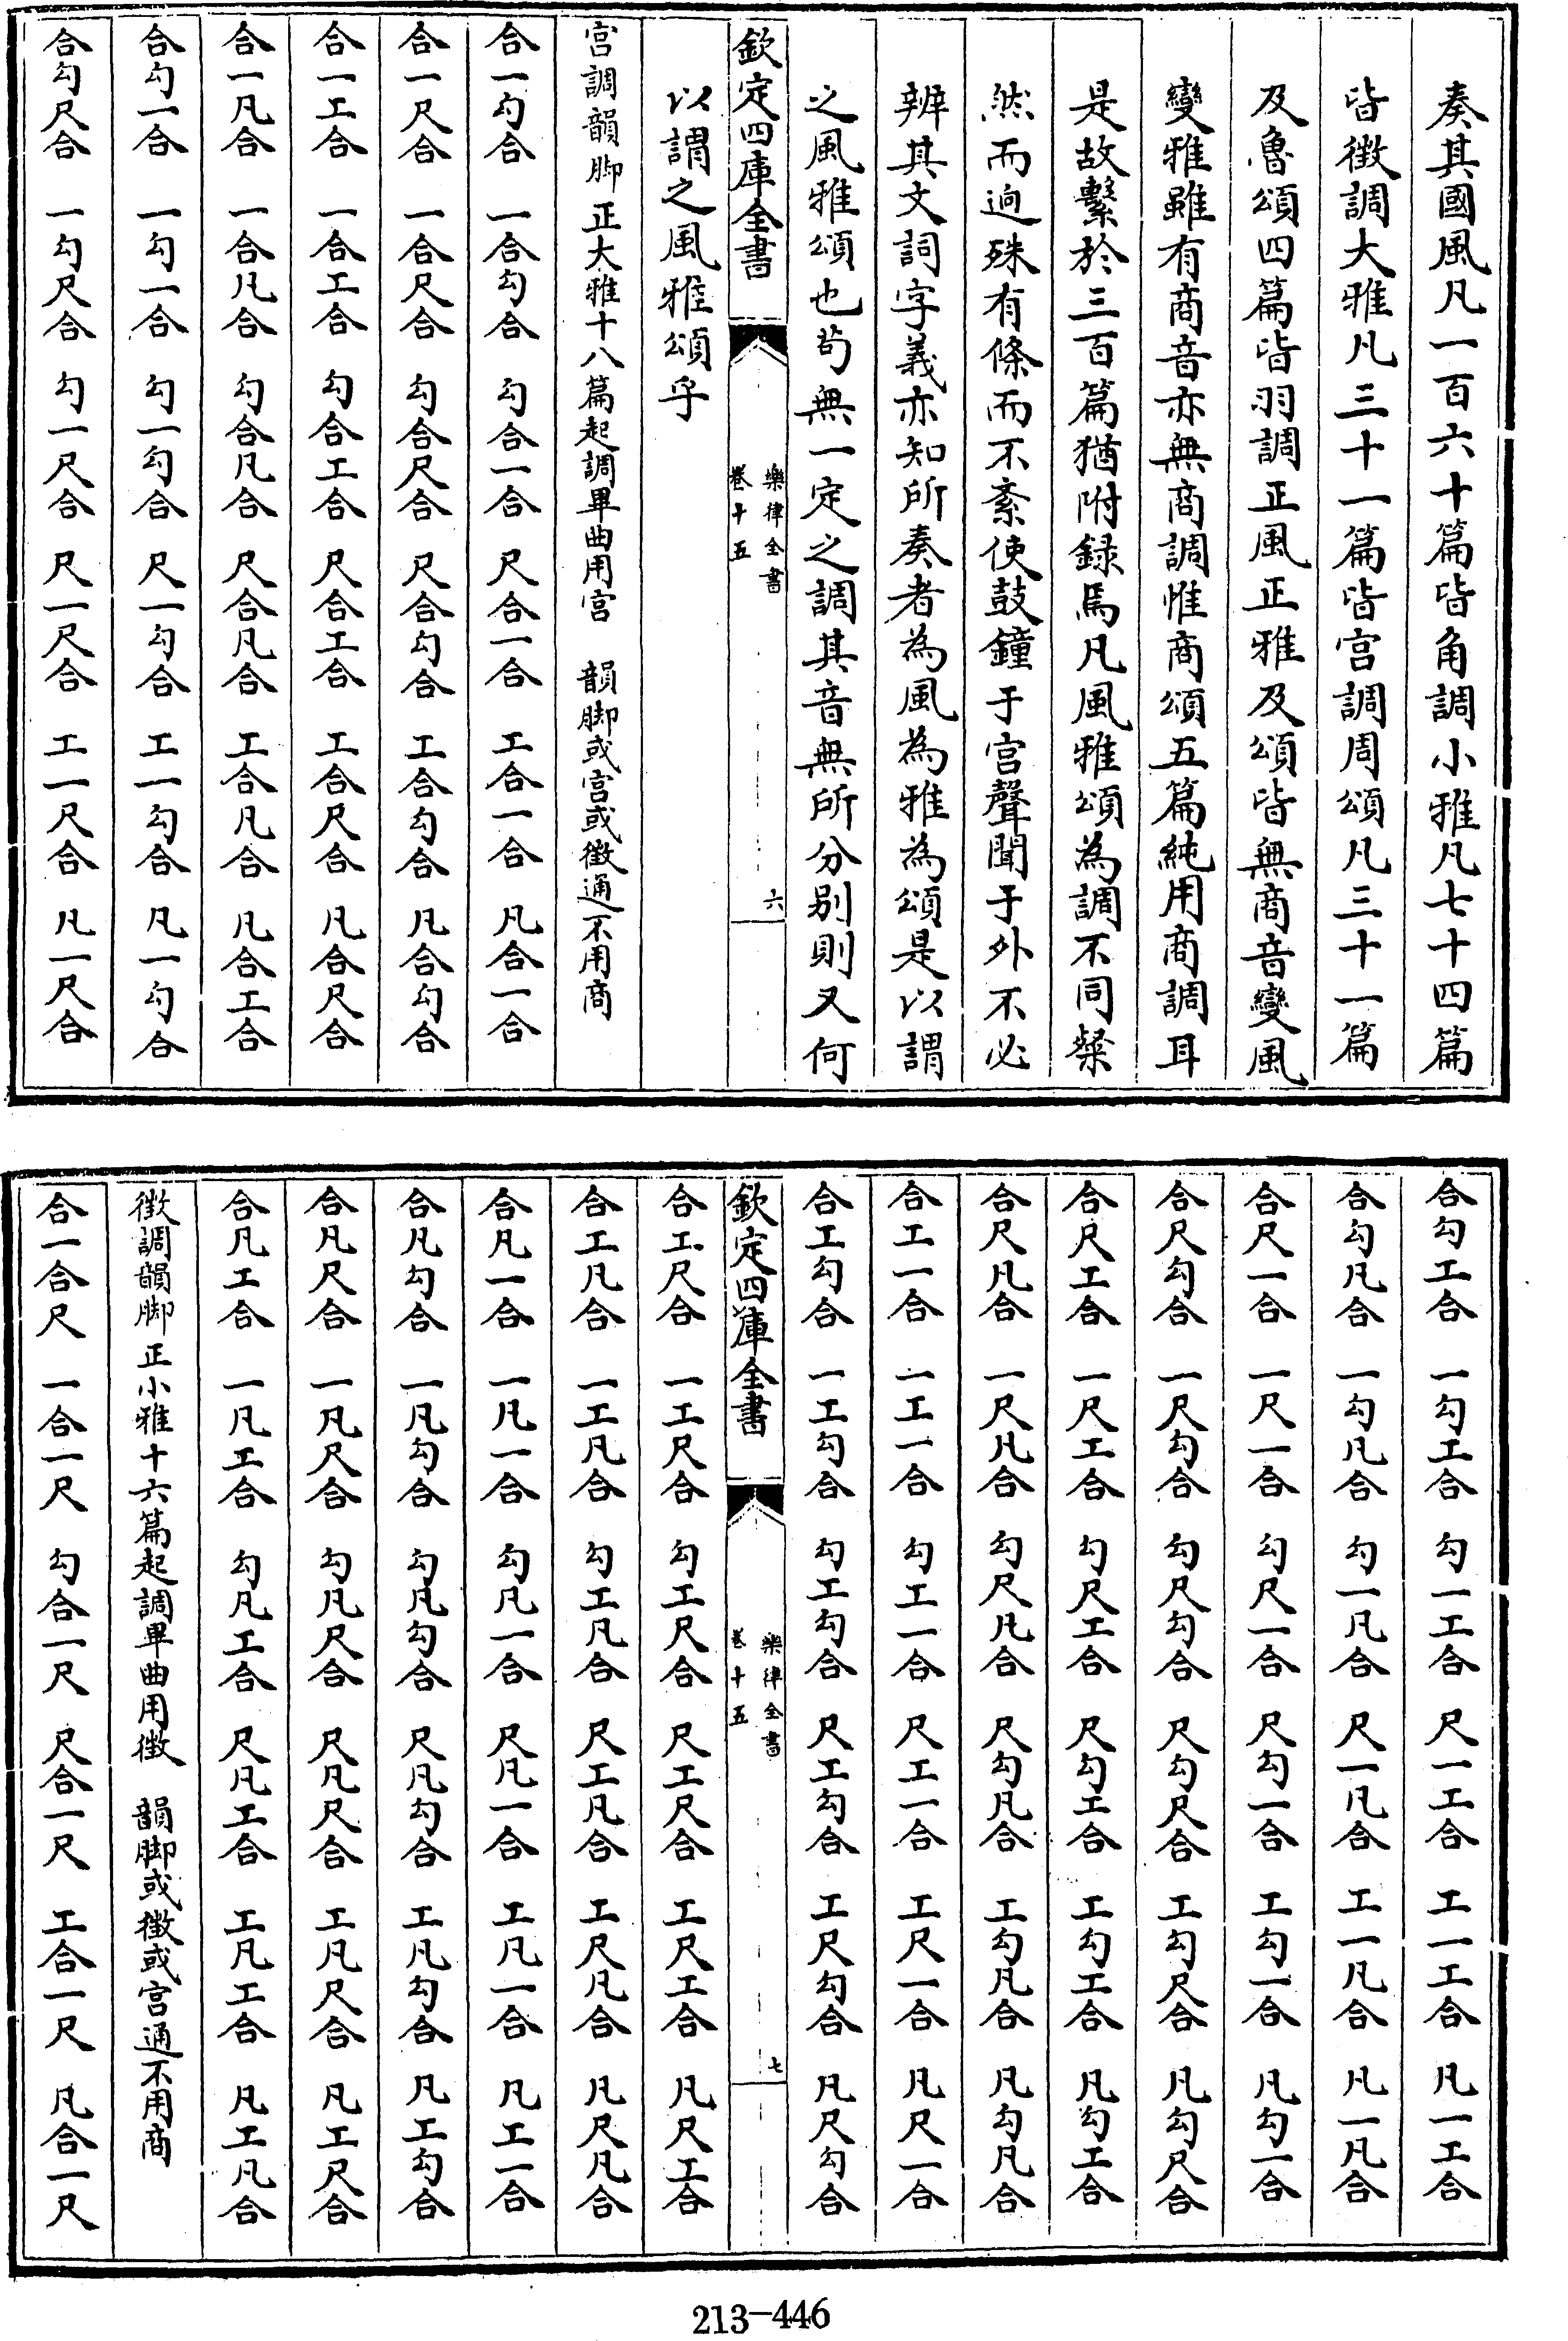 奏其國風凡一百六十篇皆角調小雅凡七十四篇
皆徵調大雅凡三十一篇皆宫調周頌凡三十一篇
及魯頌四篇皆羽調正風正雅及頌皆無商音變風
變雅雖有商音亦無商調惟商頌五篇純用商調耳
是故繫於三百篇猶附録焉凡風雅頌為調不同粲
然而逈殊有條而不紊使鼓鐘于宫聲聞于外不必
辨其文詞字義亦知所奏者為風為雅為頌是以謂
之風雅頌也茍無一定之調其音無所分别則又何
欽定四庫全書
樂律全書
卷十五
六
以謂之風雅頌乎
宫調韻脚 正大雅十八篇起調畢曲用宫 韻脚或宫或徵通不用商
合一勾合 一合勾合 勾合一合 尺合一合 工合一合 凡合一合
合一尺合 一合尺合 勾合尺合 尺合勾合 工合勾合 凡合勾合
合一工合 一合工合 勾合工合 尺合工合 工合尺合 凡合尺合
合一凡合 一合凡合 勾合凡合 尺合凡合 工合凡合 凡合工合
合勾一合 一勾一合 勾一勾合 尺一勾合 工一勾合 凡一勾合
合勾尺合 一勾尺合 勾一尺合 尺一尺合 工一尺合 凡一尺合
合勾工合 一勾工合 勾一工合 尺一工合 工一工合 凡一工合
合勾凡合 一勾凡合 勾一凡合 尺一凡合 工一凡合 凡一凡合
合尺一合 一尺一合 勾尺一合 尺勾一合 工勾一合 凡勾一合
合尺勾合 一尺勾合 勾尺勾合 尺勾尺合 工勾尺合 凡勾尺合
合尺工合 一尺工合 勾尺工合 尺勾工合 工勾工合 凡勾工合
合尺凡合 一尺凡合 勾尺凡合 尺勾凡合 工勾凡合 凡勾凡合
合工一合 一工一合 勾工一合 尺工一合 工尺一合 凡尺一合
合工勾合 一工勾合 勾工勾合 尺工勾合 工尺勾合 凡尺勾合
欽定四庫全書
樂律全書
卷十五
七
合工尺合 一工尺合 勾工尺合 尺工尺合 工尺工合 凡尺工合
合工凡合 一工凡合 勾工凡合 尺工凡合 工尺凡合 凡尺凡合
合凡一合 一凡一合 勾凡一合 尺凡一合 工凡一合 凡工一合
合凡勾合 一凡勾合 勾凡勾合 尺凡勾合 工凡勾合 凡工勾合
合凡尺合 一凡尺合 勾凡尺合 尺凡尺合 工凡尺合 凡工尺合
合凡工合 一凡工合 勾凡工合 尺凡工合 工凡工合 凡工凡合
徵調韻脚 正小雅十六篇起調畢曲用徵 韻脚或徵或宫通不用商
合一合尺 一合一尺 勾合一尺 尺合一尺 工合一尺 凡合一尺
213-446